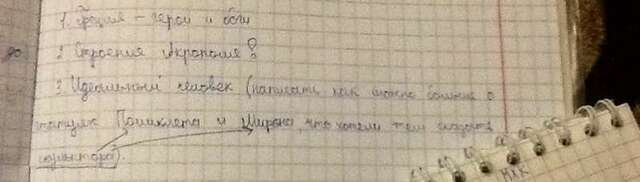 1. Греция – герои и боги
2. Строения Акрополя?
3. Идеальный человек (написать как можно больше о
статуях Поликлета и Мирона, что хотели тем сказать
скульптора).
МХК